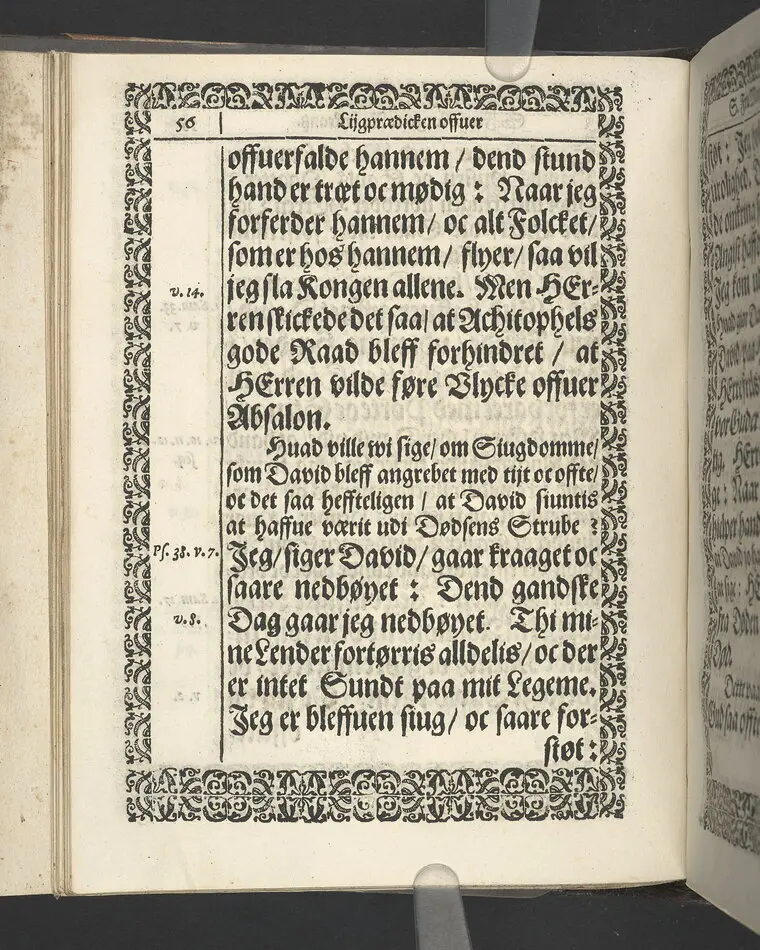 56 Lijgprædicken offuer
offuerfalde hannem / dend stund
hand er træt oc mødig : Naar jeg
forferder hannem / oc alt Folcket /
som er hos hannem / flyer / saa vil
v. 14. jeg sla Kongen allene. Men HEr-
ren skickede det saa / at Achitophels
gode Raad bleff forhindret / at
HErren vilde føre Vlycke offuer
Absalon.
Huad ville wi sige / om Siugdomme /
som David bleff angrebet med tijt oc offte /
oc det saa heffteligen / at David siuntis
at haffue værit udi Dødsens Strube ?
Ps. 38. v. 7. Jeg / siger David / gaar kraaget oc
saare nedbøyet : Dend gandske
v. 8. Dag gaar jeg nedbøyet. Thi mi-
ne Lender fortørris alldelis / oc der
er intet Sundt paa mit Legeme.
Jeg er bleffuen siug / oc saare for-
støt :